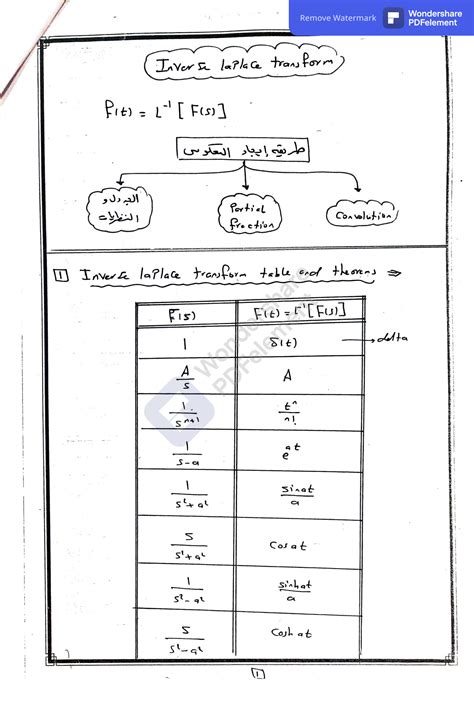 Remove Watermark
Wondershare
PDFelement
Inverse laplace transform
f(t) = L⁻¹ [ F(s) ]
طريقة إيجاد المعكوس
الجدول و
النظريات
Partial
fraction
Convolution
1 Inverse laplace transform table and theorems ⇒
F(s) F(t) = L⁻¹ [ F(s) ]
1 δ(t) → delta
A/s A
1/sⁿ⁺¹ tⁿ/n!
1/(s-a) eᵃᵗ
1/(s²+a²) sinat/a
s/(s²+a²) Cosat
1/(s²-a²) sinhat/a
s/(s²-a²) Coshat
Wondershare
PDFelement
1